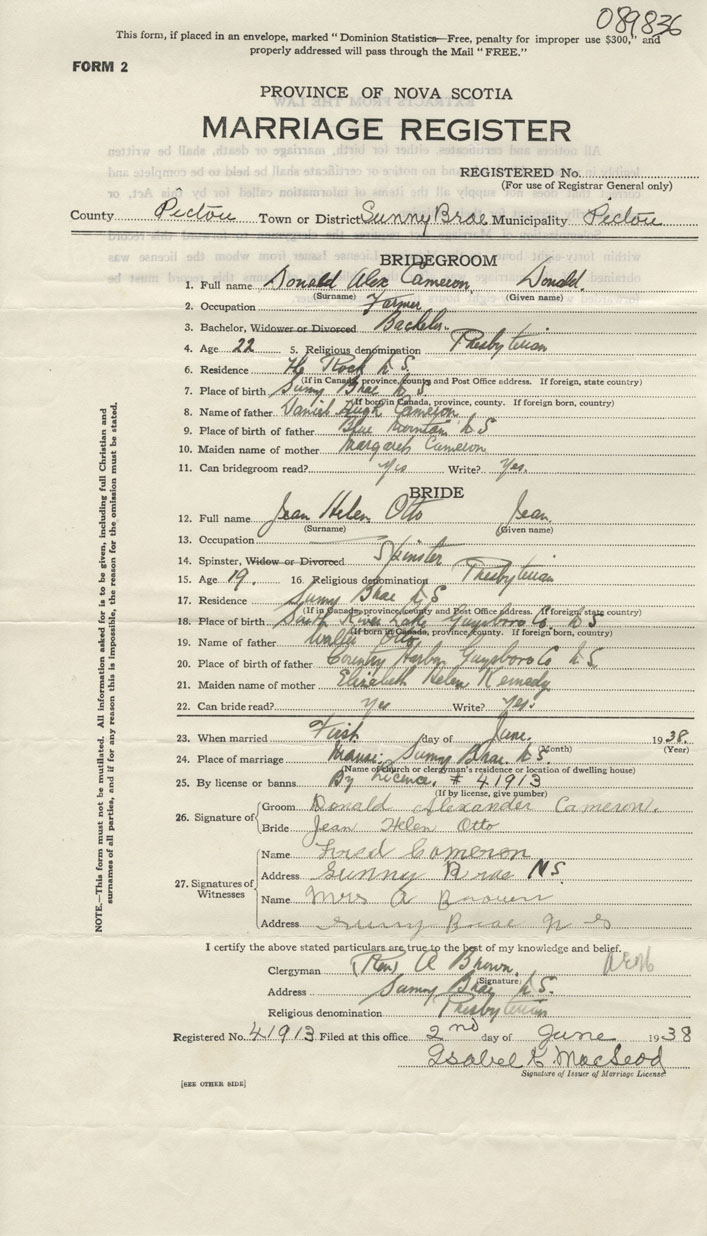 089836
This form, if placed in an envelope, marked "Dominion Statistics—Free, penalty for improper use $300," and
properly addressed will pass through the Mail "FREE."
FORM 2
PROVINCE OF NOVA SCOTIA
MARRIAGE REGISTER
REGISTERED No.
(For use of Registrar General only)
County Pictou Town or District Sunny Brae Municipality Pictou
BRIDEGROOM
1. Full name Donald Alex Cameron, Donald.
(Surname) (Given name)
2. Occupation Farmer
3. Bachelor, Widower or Divorced Bachelor.
4. Age 22 5. Religious denomination Presbyterian
6. Residence The Rock N S.
(If in Canada, province, county and Post Office address. If foreign, state country)
7. Place of birth Sunny Brae N S
(If born in Canada, province, county. If foreign born, country)
8. Name of father Daniel Hugh Cameron
9. Place of birth of father Blue Mountain N S
10. Maiden name of mother Margaret Cameron
11. Can bridegroom read? Yes Write? Yes.
BRIDE
12. Full name Jean Helen Otto Jean.
(Surname) (Given name)
13. Occupation
14. Spinster, Widow or Divorced Spinster
15. Age 19. 16. Religious denomination Presbyterian
17. Residence Sunny Brae N S
(If in Canada, province, county and Post Office address. If foreign, state country)
18. Place of birth South River Lake Guysboro Co. N S
(If born in Canada, province, county. If foreign born, country)
19. Name of father Walter Otto
20. Place of birth of father Country Harbor Guysboro Co N S
21. Maiden name of mother Elizabeth Helen Kennedy
22. Can bride read? Yes Write? Yes.
23. When married First day of June. 1938.
(Month) (Year)
24. Place of marriage Manse, Sunny Brae. N S.
(Name of church or clergyman's residence or location of dwelling house)
25. By license or banns By Licence. # 41913
(If by license, give number)
26. Signature of
Groom Donald Alexander Cameron.
Bride Jean Helen Otto
27. Signatures of Witnesses
Name Fred Cameron
Address Sunny Brae N S.
Name Mrs A Brown
Address Sunny Brae N S
I certify the above stated particulars are true to the best of my knowledge and belief.
Clergyman (Rev) A Brown.
(Signature)
Address Sunny Brae N S.
Religious denomination Presbyterian
Registered No. 41913 Filed at this office 2nd day of June 1938
Isabel K MacLeod
Signature of Issuer of Marriage License
[SEE OTHER SIDE]
NOTE.—This form must not be mutilated. All information asked for is to be given, including full Christian and
surnames of all parties, and if for any reason this is impossible, the reason for the omission must be stated.